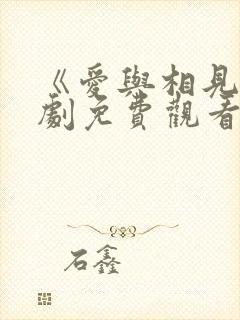 《愛與相見
劇免費觀看
石鑫